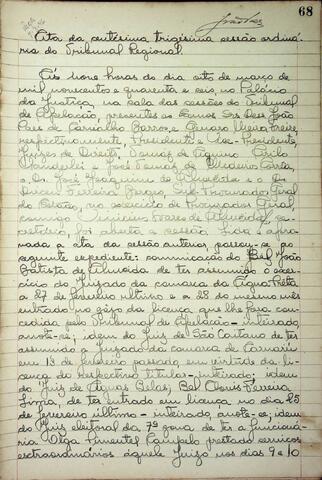 68
Ata da centésima trigésima sessão ordiná-
ria do Tribunal Regional
Ás nove horas do dia oito de março de
mil novecentos e quarenta e seis, no Palácio
da Justiça, na sala das sessões do Tribunal
de Apelação, presentes os Exmos Srs Des João
Paes de Carvalho Barros, e Genaro Freire,
respectivamente, Presidente e Vice-Presidente,
Juizes de Direito, Tomás de Aquino Cirilo
Wanderlei e José Tomás de Medeiros Correia,
o Dr. José Joaquim de Almeida e o Dr
Ferreira Borges, Sub-Procurador Geral
do Estado, no exercício de Procurador Geral,
comigo Soares de Almeida, se-
cretário, foi aberta a sessão. Lida e apro-
vada a ata da sessão anterior, passou-se ao
seguinte expediente: comunicação do Bel João
Batista de Almeida de ter assumido o exer-
cício do Juizado da comarca de Água Preta
a 27 de fevereiro ultimo e a 28 do mesmo mês
entrado no gôzo da licença que lhe fôra con-
cedida pelo Tribunal de Apelação - inteirado,
anote-se; idem do Juiz de São Caetano de ter
assumido o Juizado da comarca de
em 13 de fevereiro passado, em virtude da li-
cença do respectivo titular - inteirado; idem
do Juiz de Águas Belas, Bel Ferreira
Lima, de ter entrado em licença, no dia 25
de fevereiro último - inteirado, anote-se; idem
do Juiz eleitoral da 7ª zona de ter a funcioná-
ria Olga Pimentel Campelo prestado serviços
extraordinários áquele Juizo nos dias 9 e 10